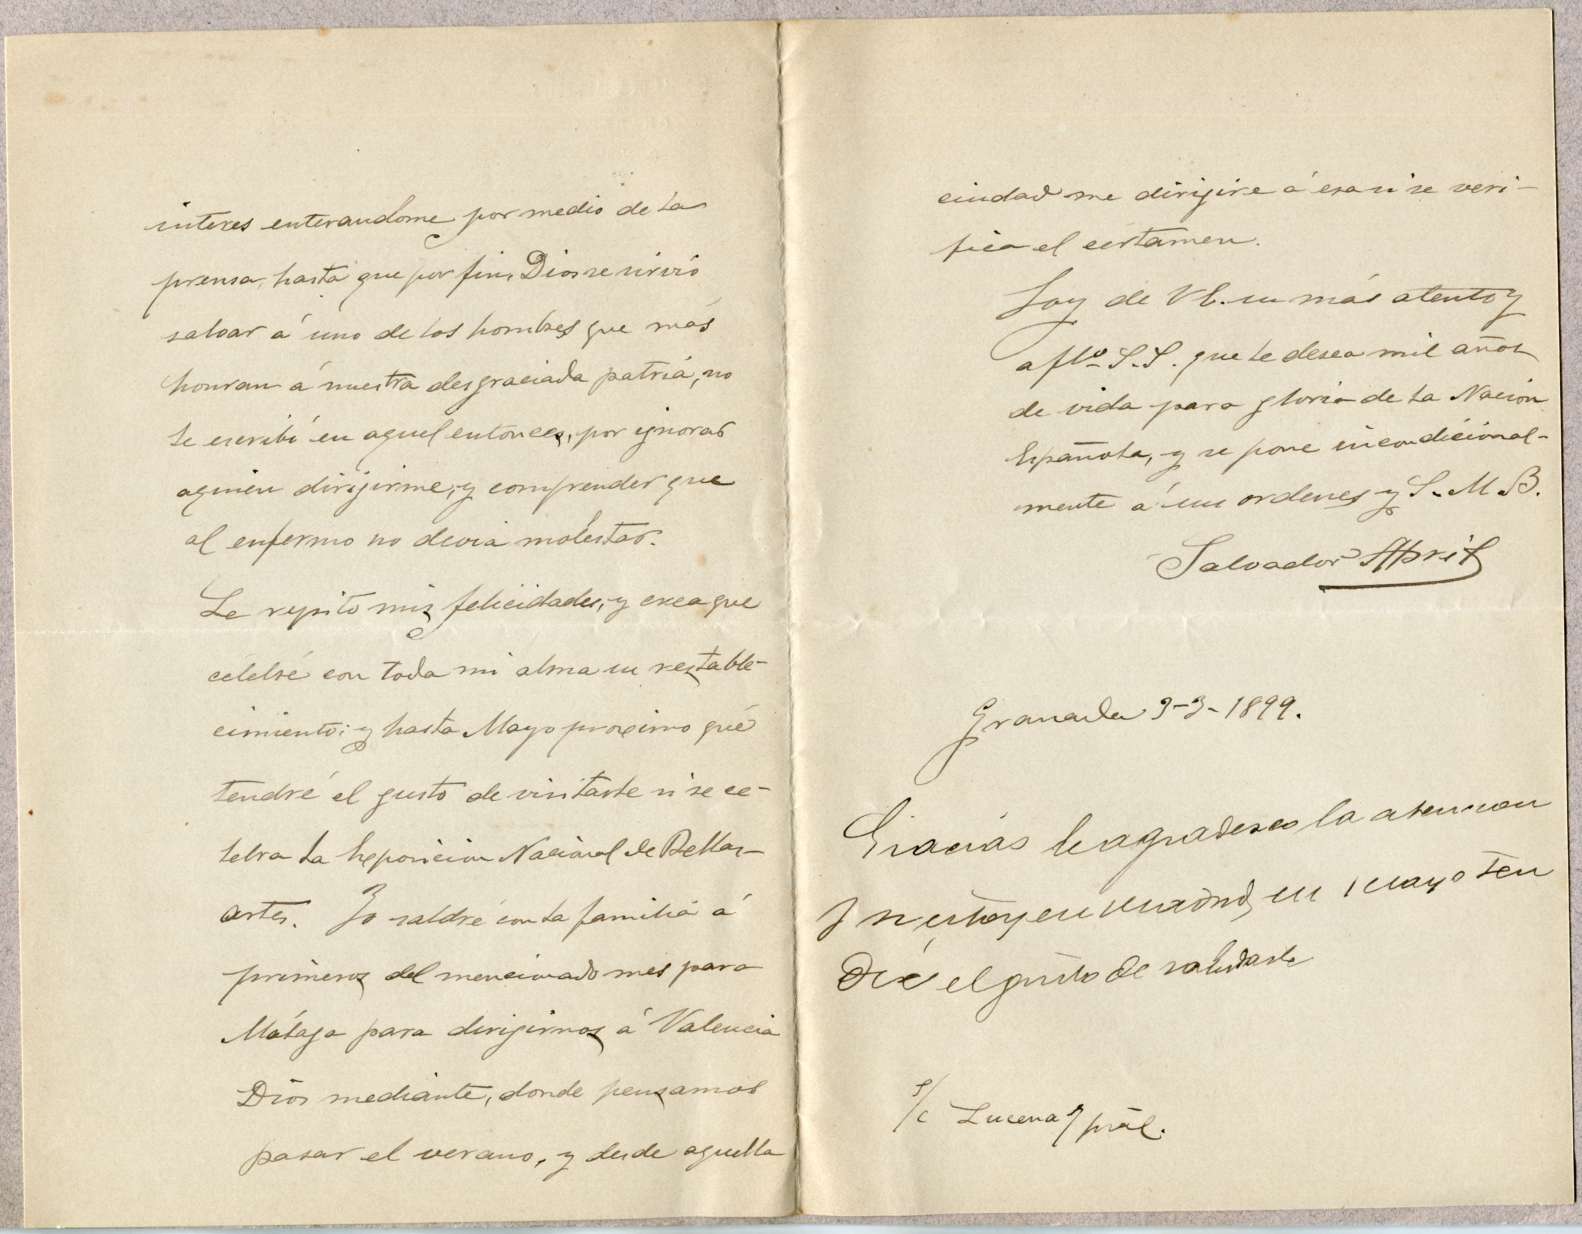 interes enterandome por medio de la
prensa, hasta que por fin, Dios se sirvió
salvar á uno de los hombres que más
honran á nuestra desgraciada patria, no
le escribí en aquel entonces, por ignorar
aquien dirijirme, y comprender que
al enfermo no devia molestar.
Le repito mis felicidades, y crea que
celebré con toda mi alma su restable-
cimiento; y hasta Mayo proximo que
tendré el gusto de visitarle si se ce-
lebra la Exposicion Nacional de Bellas-
artes. Yo saldré con la familia á
primeros del mencionado mes para
Málaga para dirijirnos á Valencia
Dios mediante, donde pensamos
pasar el verano, y desde aquella
ciudad me dirijire á esa si se veri-
fica el certamen.
Soy de Vd. su más atento y
affº S.S. que le desea mil años
de vida para gloria de la Nacion
Española, y se pone incondicional-
mente á sus ordenes y S. M. B.
Salvador Abril
Granada 3-3-1899.
Gracias le agradesco la atencion
y si estoy en Madrid en Mayo ten
Dré el gusto de saludarle
s/c Lucena 7 pral.